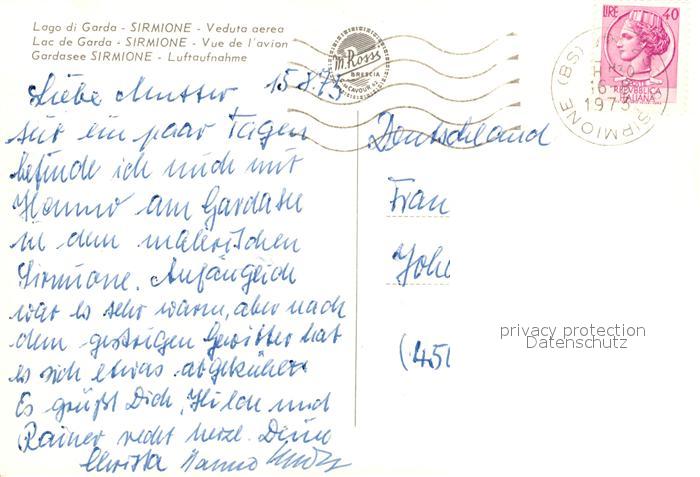 Lago di Garda - SIRMIONE - Veduta aerea
Lac de Garda - SIRMIONE - Vue de l'avion
Gardasee SIRMIONE - Luftaufnahme
M. Ross
BRESCIA
LIRE 40
REPVBBLICA
ITALIANA
SIRMIONE (BS)
1973
15.8.73
Liebe Mutter
seit ein paar Tagen
befinde ich mich mit
Hanno am Gardasee
in dem malerischen
Sirmione. Anfänglich
war es sehr warm, aber nach
dem gestrigen Gewitter hat
es sich etwas abgekühlt.
Es grüßt Dich, und
Rainer recht herzl. Deine
Christa Hanno
Deutschland
Frau
Johe
(45
privacy protection
Datenschutz